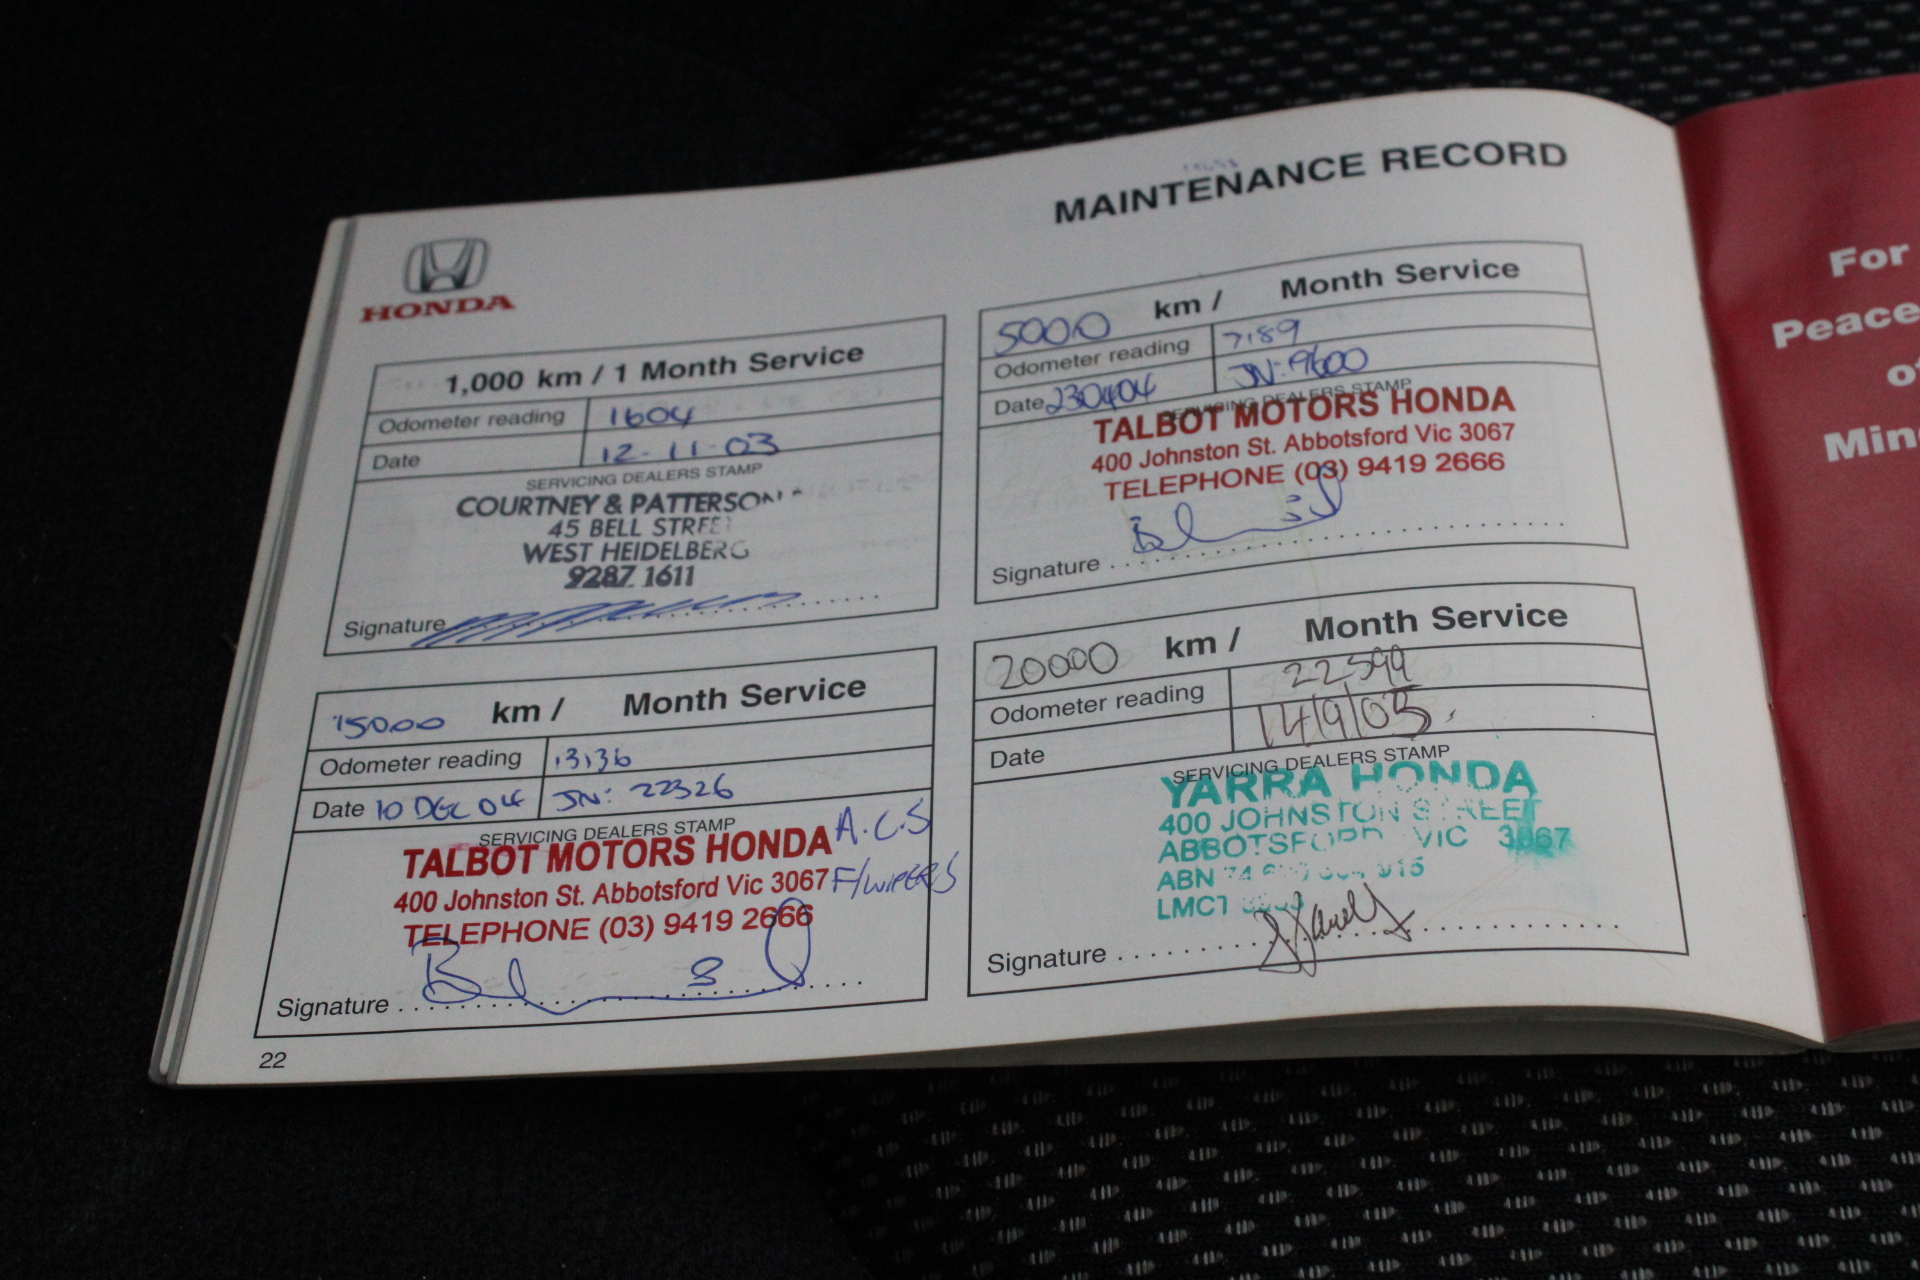 MAINTENANCE RECORD
HONDA
1,000 km / 1 Month Service
Odometer reading 1604
Date 12-11-03
SERVICING DEALERS STAMP
COURTNEY & PATTERSON
45 BELL STREET
WEST HEIDELBERG
9287 1611
Signature
5000 km / Month Service
Odometer reading 7189
Date 230404 JN: 9600
SERVICING DEALERS STAMP
TALBOT MOTORS HONDA
400 Johnston St. Abbotsford Vic 3067
TELEPHONE (03) 9419 2666
Signature
15000 km / Month Service
Odometer reading 13136
Date 10 DEC 04 JN: 22326
SERVICING DEALERS STAMP
TALBOT MOTORS HONDA A.C.S
400 Johnston St. Abbotsford Vic 3067 F/WIPERS
TELEPHONE (03) 9419 2666
Signature
20000 km / Month Service
Odometer reading 22599
Date 14/9/05
SERVICING DEALERS STAMP
YARRA HONDA
400 JOHNSTON STREET
ABBOTSFORD VIC 3067
ABN
LMCT
Signature
22
For
Peace